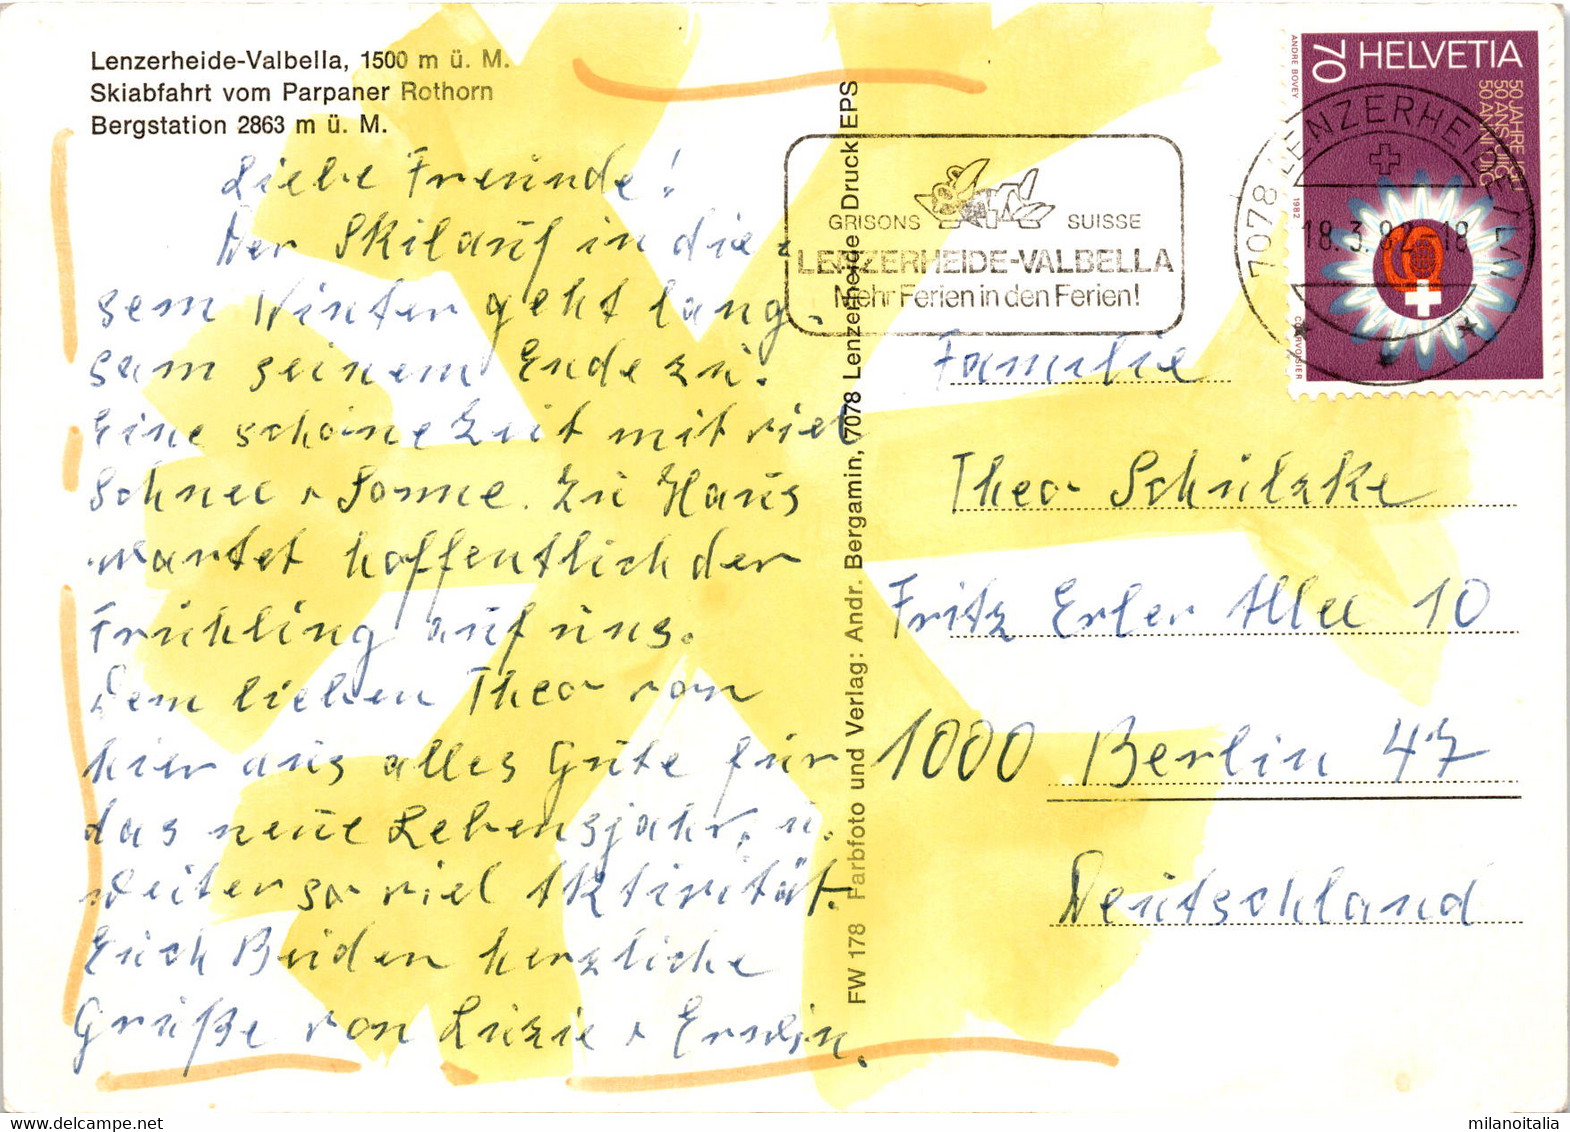 Lenzerheide-Valbella, 1500 m ü. M.
Skiabfahrt vom Parpaner Rothorn
Bergstation 2863 m ü. M.
Liebe Freunde!
Der Skilauf in die-
sem Winter geht lang-
sam seinem Ende zu.
Eine schöne Zeit mit viel
Schnee + Sonne. Zu Haus
wartet hoffentlich der
Frühling auf uns.
Dem lieben Theo von
hier aus alles Gute für
das neue Lebensjahr, u.
weiter so viel Aktivität.
Euch Beiden herzliche
Grüße von Luzie + Erwin.
FW 178 Farbfoto und Verlag: Andr. Bergamin, 7078 Lenzerheide Druck: EPS
GRISONS SUISSE
LENZERHEIDE-VALBELLA
Mehr Ferien in den Ferien!
7078 LENZERHEIDE / LAI
18.3.82-18
70 HELVETIA
50 JAHRE
50 ANS UIG
50 ANNI UIG
ANDRE BOVEY
1982
COURVOISIER
Familie
Theo Schulzke
Fritz Erler Allee 10
1000 Berlin 47
Deutschland
milanoitalia